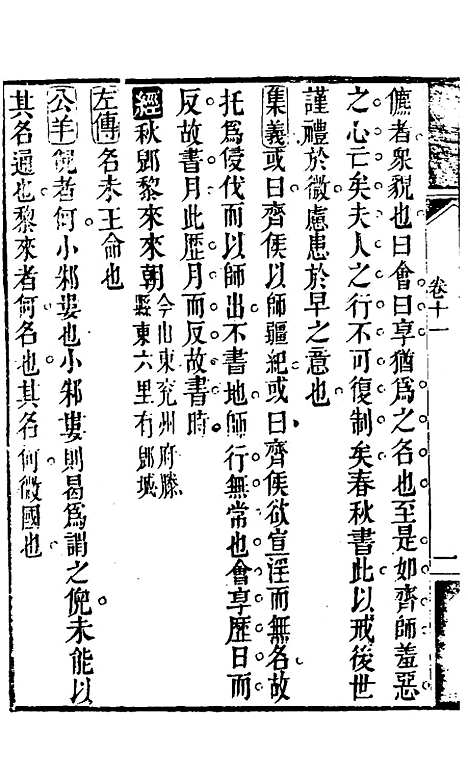 儦者衆貌也曰會曰享猶爲之名也至是如齊師羞惡
之心亡矣夫人之行不可復制矣春秋書此以戒後世
謹禮於微慮患於早之意也
集義或曰齊侯以師疆紀或曰齊侯欲宣淫而無名故
托爲侵伐而以師出不書地師行無常也會享歷日而
反故書月此歷月而反故書時
經秋郳黎來來朝今山東兖州府滕縣東六里有郳城
左傳名未王命也
公羊倪者何小邾婁也小邾婁則曷爲謂之倪未能以
其名通也黎來者何名也其名何微國也
卷十一
一